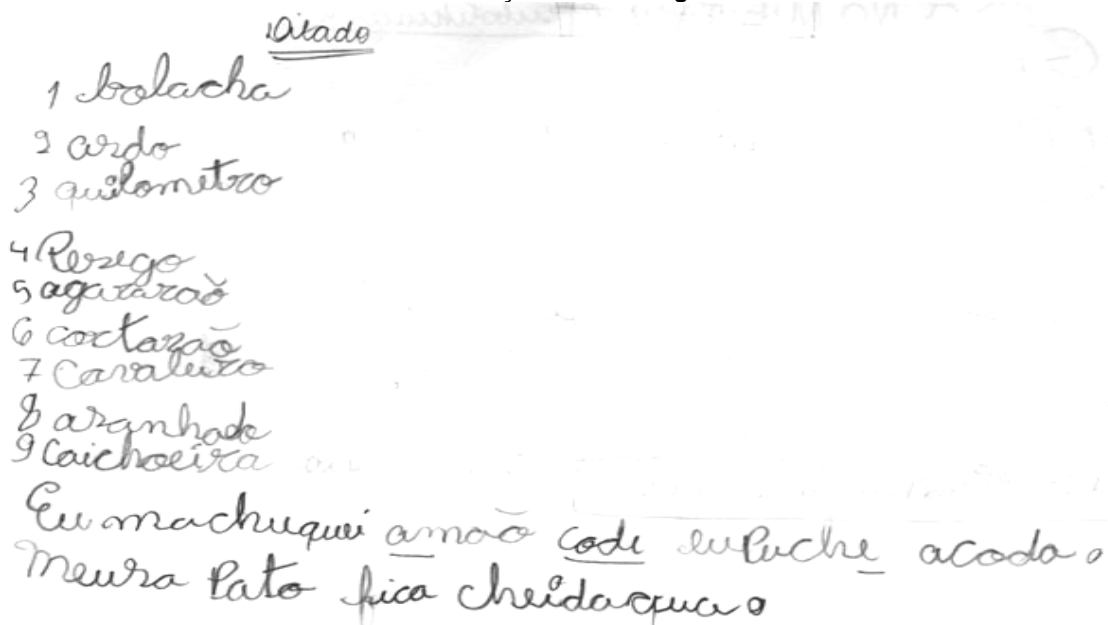 Ditado
1 bolacha
2 ardo
3 quilometro
4 Perzego
5 agararão
6 cortarão
7 Cavaleiro
8 aranhado
9 Caichoeira
Eu machuquei amão code eu Puche acoda.
Meura Pato fica cheidaqua.